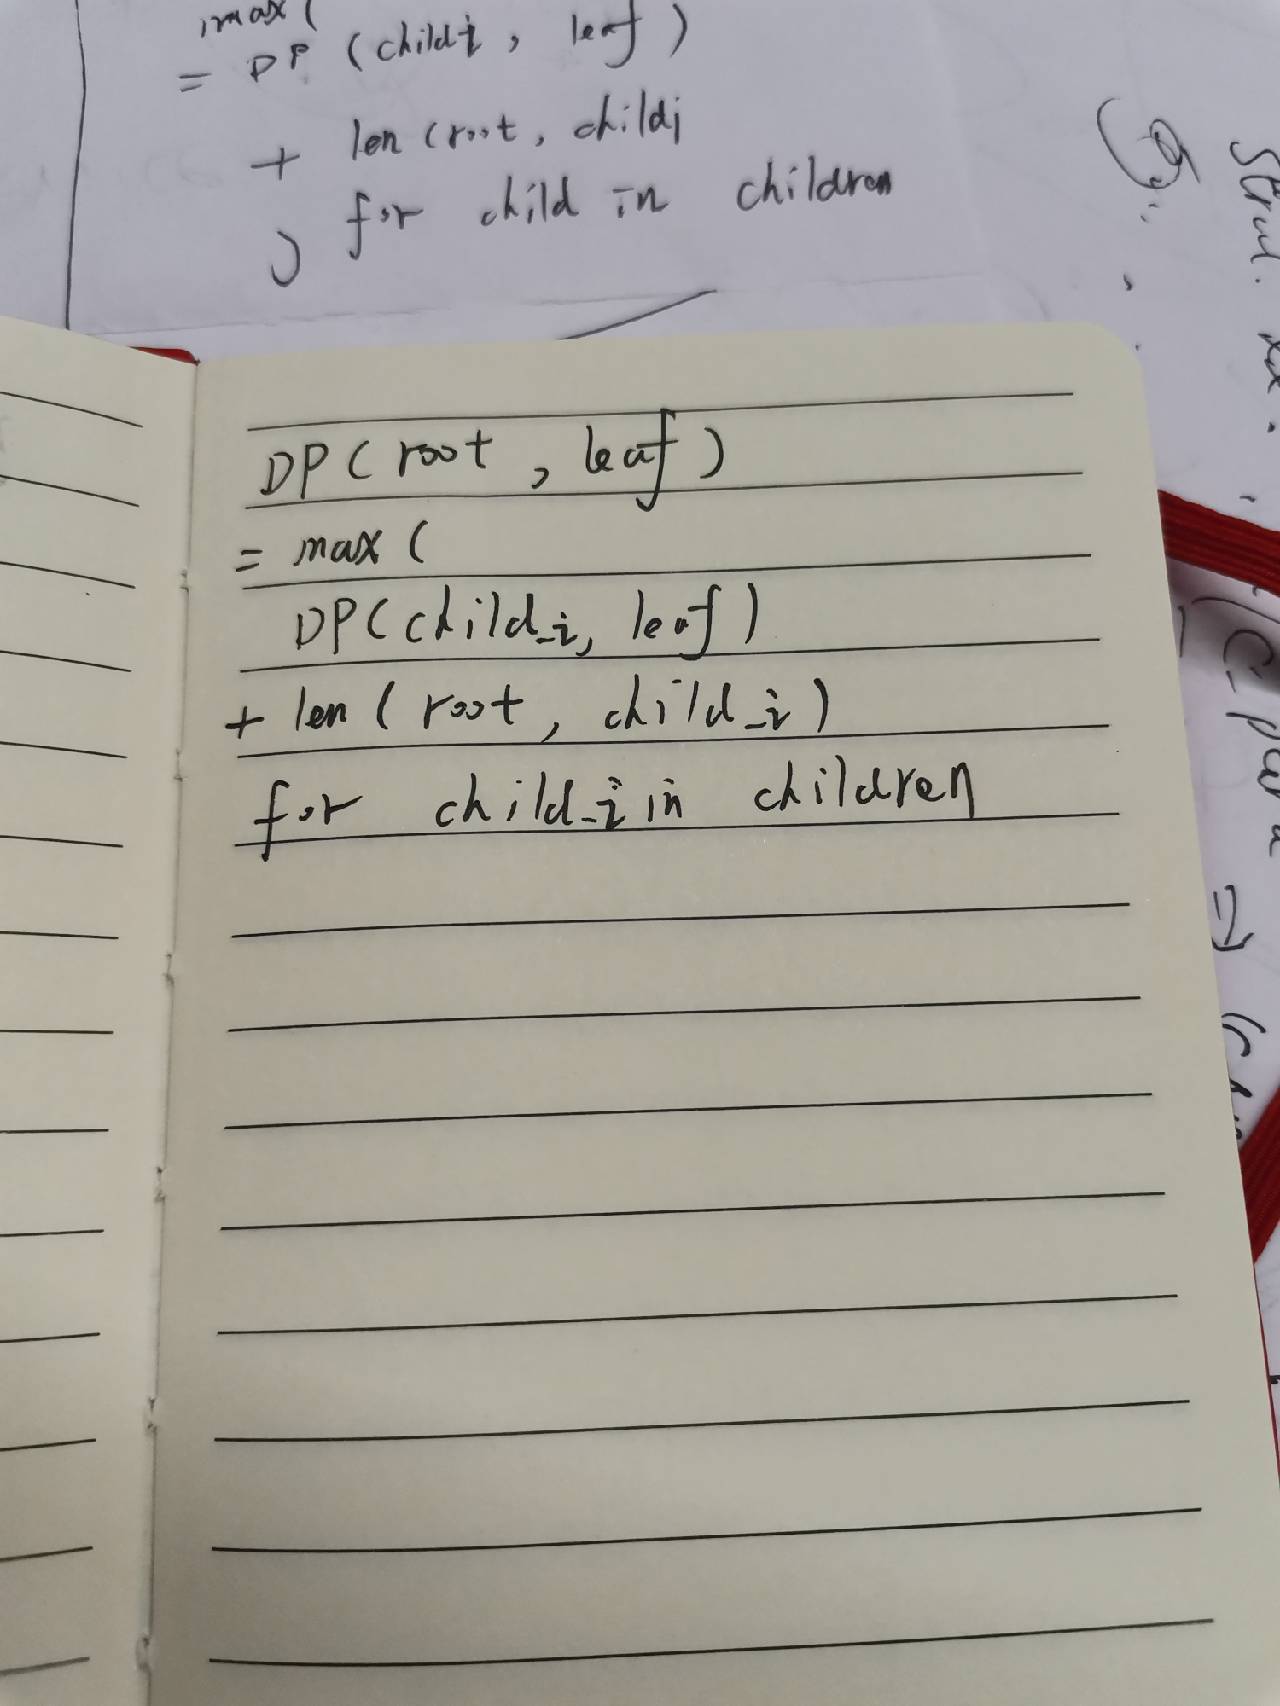 max(
= DP (childi, leaf)
+ len (root, childi
for child in children
)
DP(root, leaf)
= max(
DP(child_i, leaf)
+ len(root, child_i)
for child_i in children